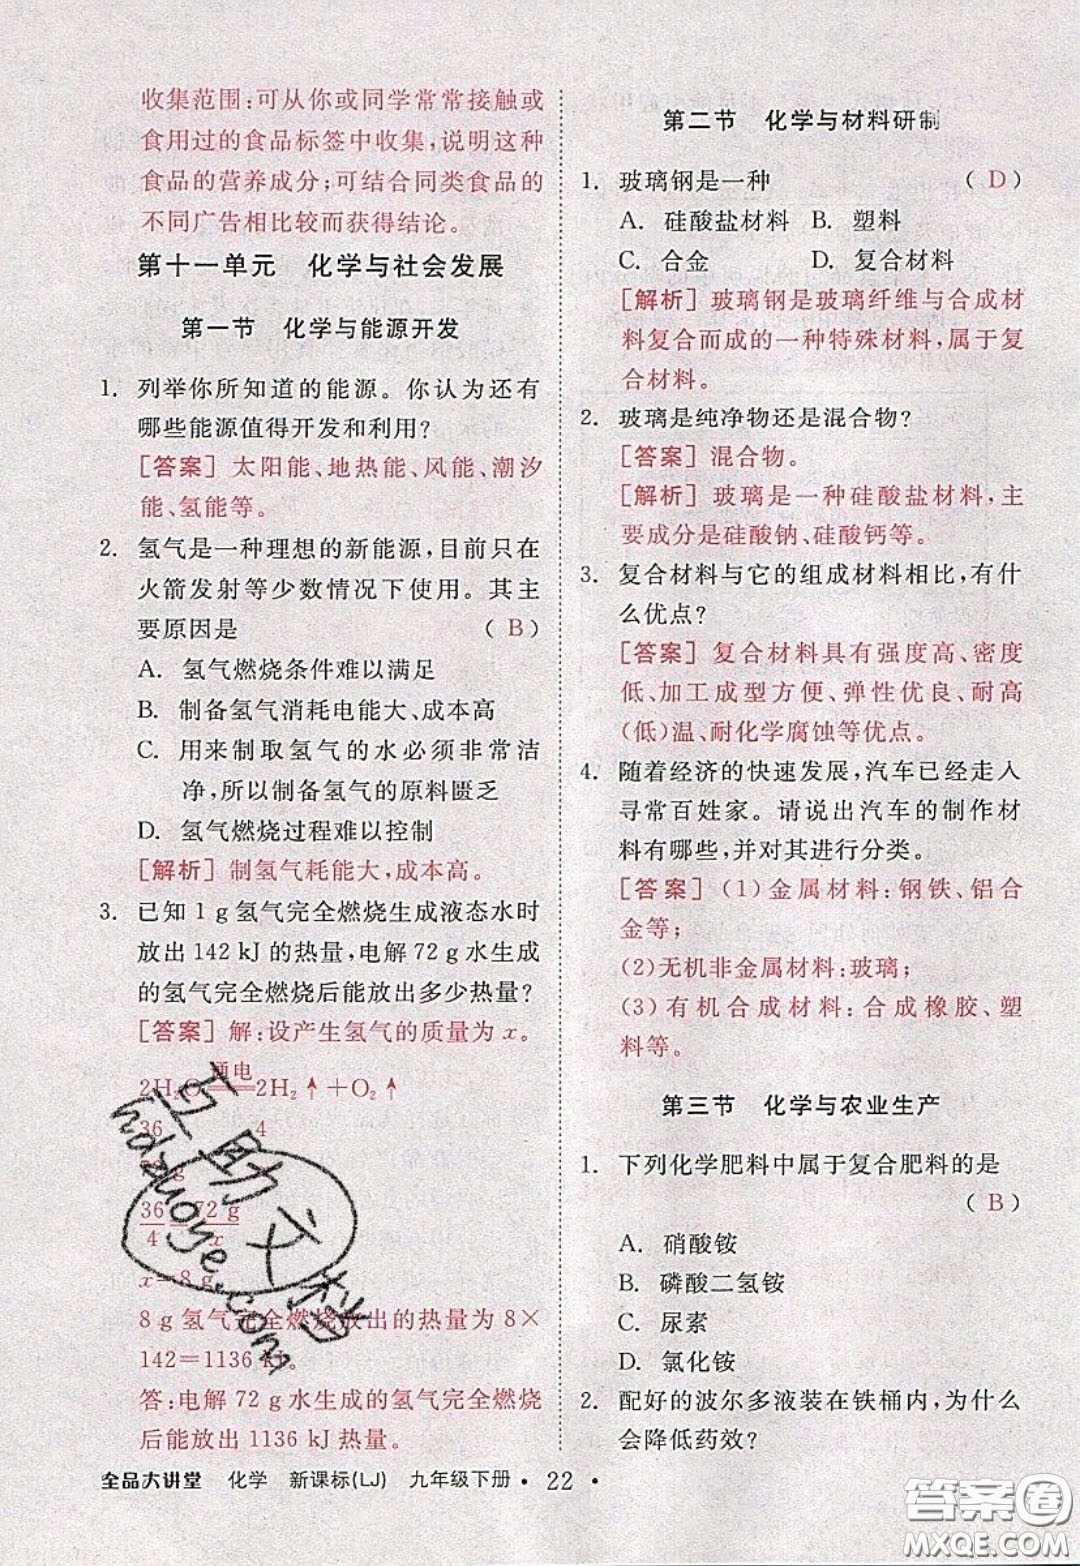 收集范围:可从你或同学常常接触或
食用过的食品标签中收集,说明这种
食品的营养成分;可结合同类食品的
不同广告相比较而获得结论。
第十一单元 化学与社会发展
第一节 化学与能源开发
1. 列举你所知道的能源。你认为还有
哪些能源值得开发和利用?
[答案] 太阳能、地热能、风能、潮汐
能、氢能等。
2. 氢气是一种理想的新能源,目前只在
火箭发射等少数情况下使用。其主
要原因是 ( B )
A. 氢气燃烧条件难以满足
B. 制备氢气消耗电能大、成本高
C. 用来制取氢气的水必须非常洁
净,所以制备氢气的原料匮乏
D. 氢气燃烧过程难以控制
[解析] 制氢气耗能大,成本高。
3. 已知 1 g 氢气完全燃烧生成液态水时
放出 142 kJ 的热量,电解 72 g 水生成
的氢气完全燃烧后能放出多少热量?
[答案] 解:设产生氢气的质量为 x。
通电
2H₂O══2H₂↑+O₂↑
36 4
72 g x
36/4=72 g/x
x=8 g
8 g 氢气完全燃烧放出的热量为 8×
142=1136 kJ。
答:电解 72 g 水生成的氢气完全燃烧
后能放出 1136 kJ 热量。
第二节 化学与材料研制
1. 玻璃钢是一种 ( D )
A. 硅酸盐材料 B. 塑料
C. 合金 D. 复合材料
[解析] 玻璃钢是玻璃纤维与合成材
料复合而成的一种特殊材料,属于复
合材料。
2. 玻璃是纯净物还是混合物?
[答案] 混合物。
[解析] 玻璃是一种硅酸盐材料,主
要成分是硅酸钠、硅酸钙等。
3. 复合材料与它的组成材料相比,有什
么优点?
[答案] 复合材料具有强度高、密度
低、加工成型方便、弹性优良、耐高
(低)温、耐化学腐蚀等优点。
4. 随着经济的快速发展,汽车已经走入
寻常百姓家。请说出汽车的制作材
料有哪些,并对其进行分类。
[答案] (1)金属材料:钢铁、铝合
金等;
(2)无机非金属材料:玻璃;
(3)有机合成材料:合成橡胶、塑
料等。
第三节 化学与农业生产
1. 下列化学肥料中属于复合肥料的是
( B )
A. 硝酸铵
B. 磷酸二氢铵
C. 尿素
D. 氯化铵
2. 配好的波尔多液装在铁桶内,为什么
会降低药效?
全品大讲堂 化学 新课标(LJ) 九年级下册 • 22 •
互助文档
hdzuoye.com
答案圈
MXQE.COM